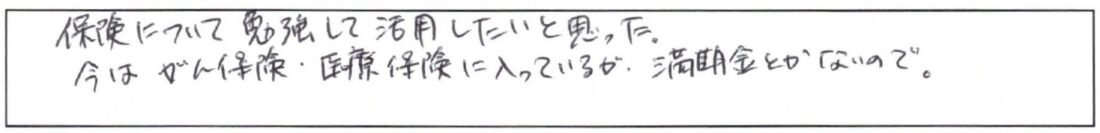 保険について勉強して活用したいと思った。
今はがん保険・医療保険に入っているが、満期金とかないので。